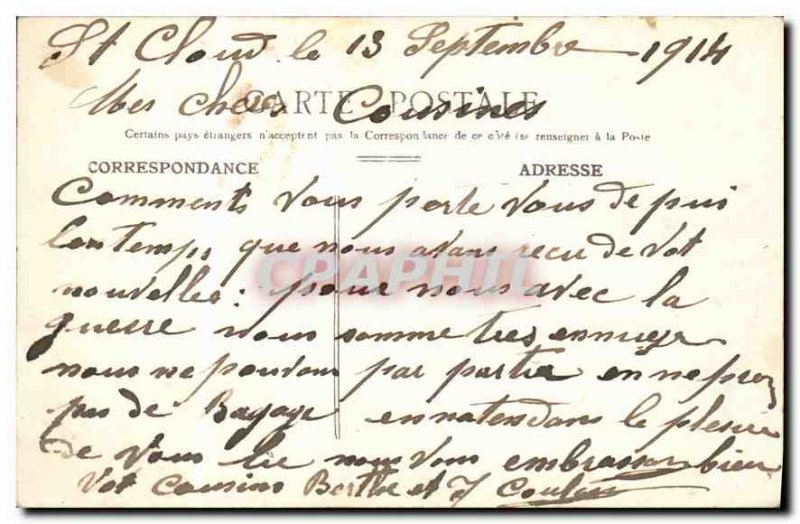 St Cloud le 13 Septembre 1914
CARTE POSTALE
Mes cheres Cousines
Certains pays étrangers n'acceptent pas la Correspondance de ce côté (se renseigner à la Poste
CORRESPONDANCE ADRESSE
Comments vous porte vous de puis
lontemps que nous avons recu de vot
CRAPHIL
nouvelles: pour nous avec la
guerre nous somme tres ennuyer
nous ne pouvons par partir en ne pren
pas de Bagage en natendans le plesire
de vous lire nous vous embrasson bien
Vot cousins Berthe et J